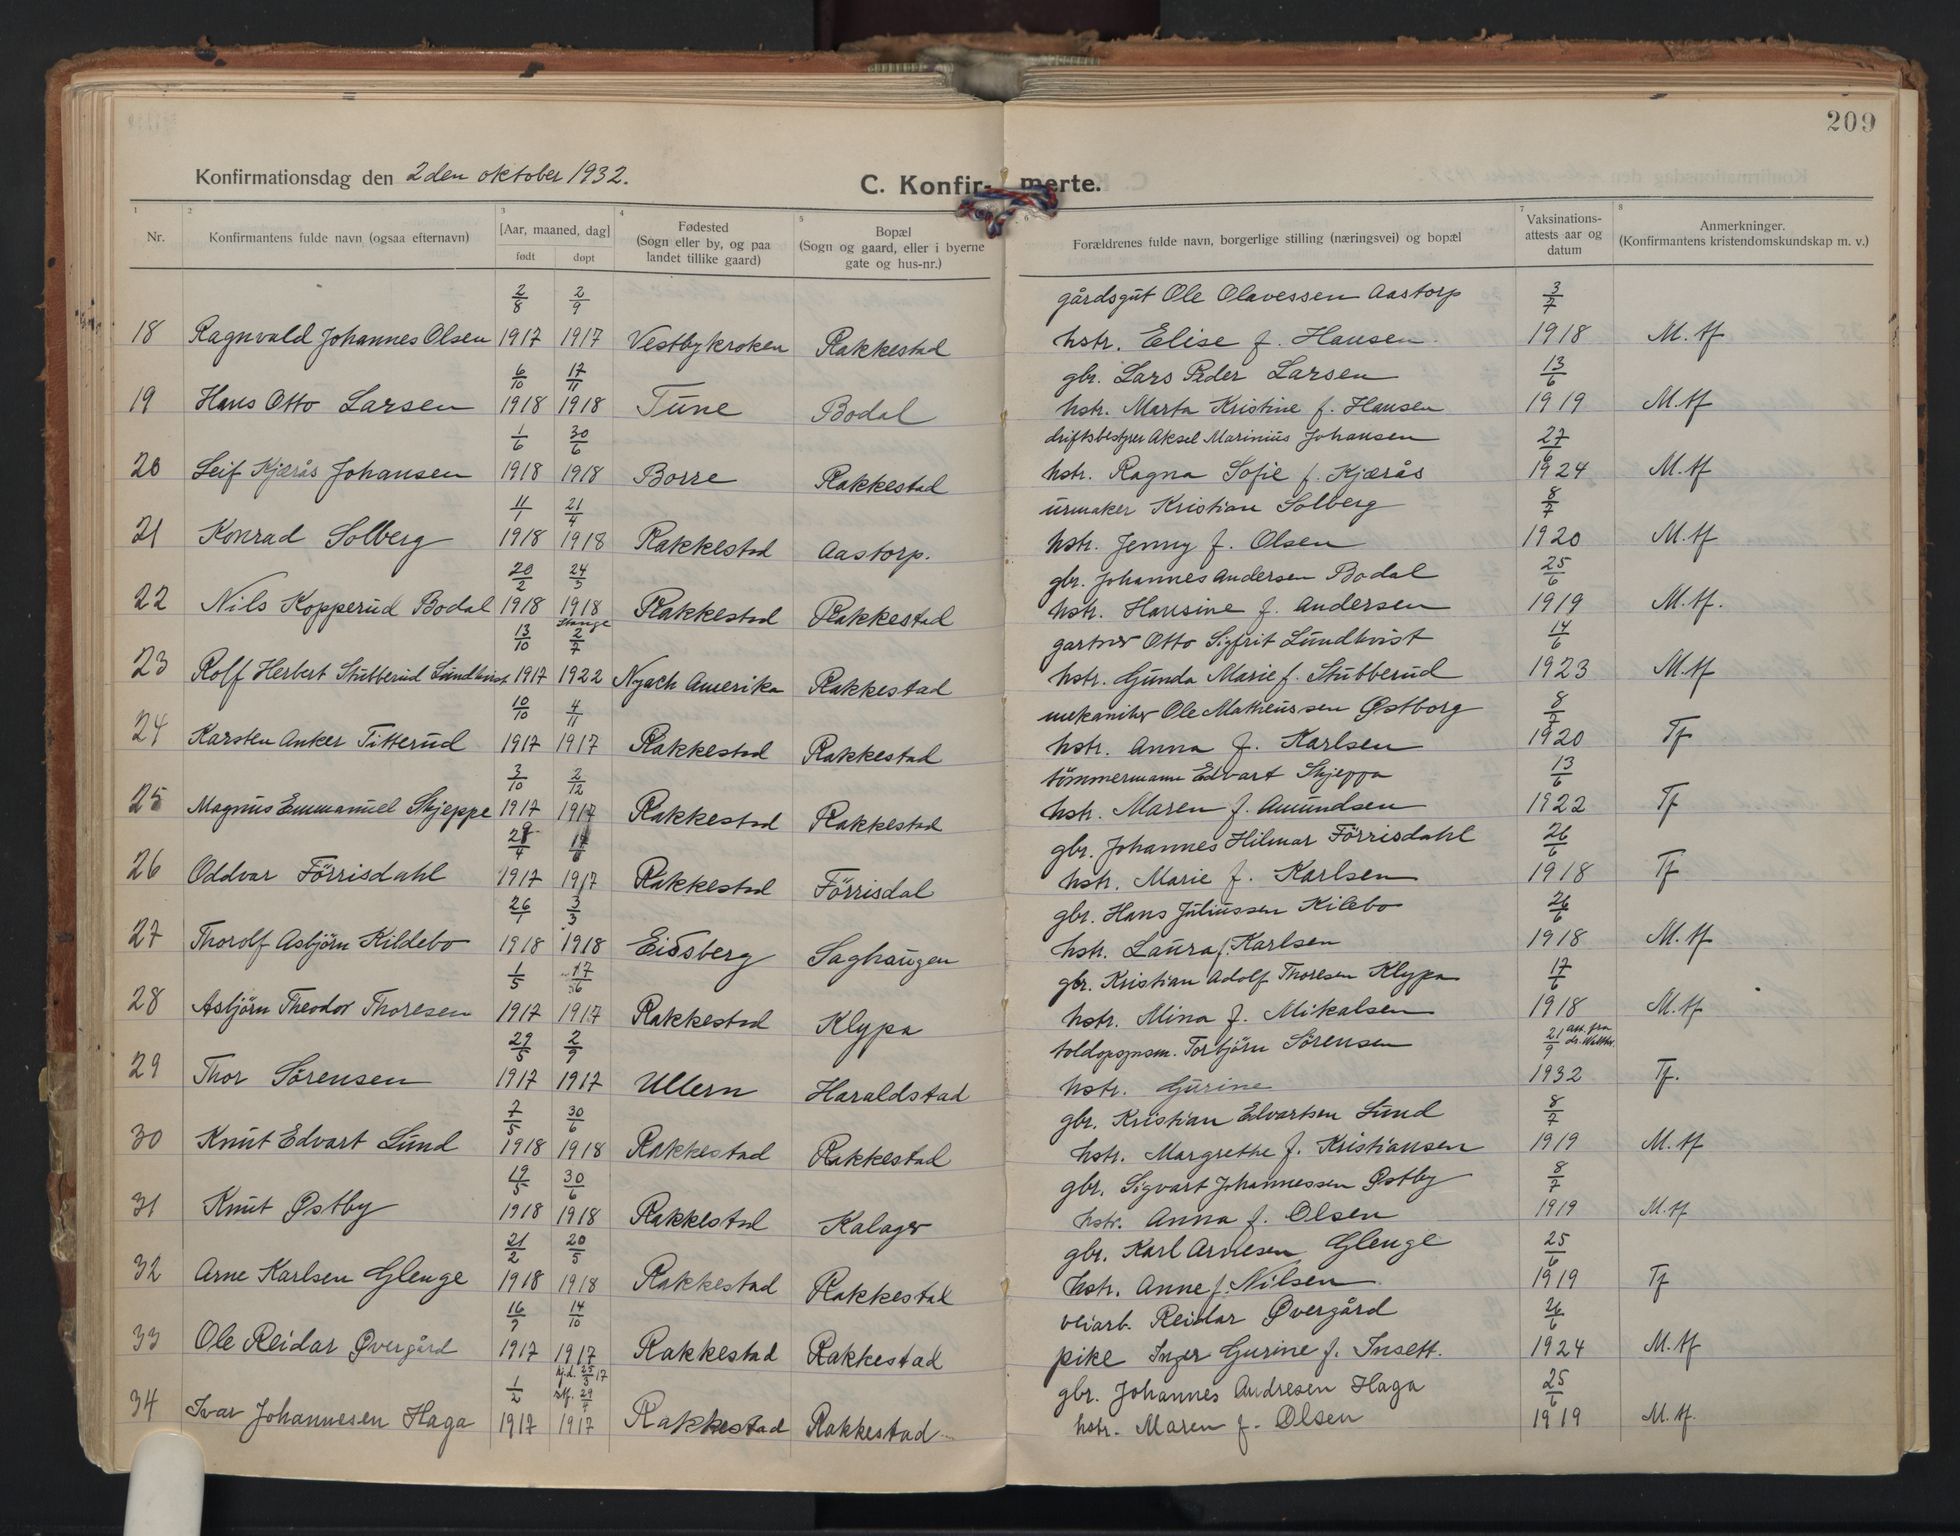 209
Konfirmationsdag den 2den oktober 1932.
C. Konfir- merte.
1 2 3 4 5 6 7 8
Nr. Konfirmantens fulde navn (ogsaa efternavn) [Aar, maaned, dag] født døpt Fødested (Sogn eller by, og paa landet tillike gaard) Bopæl (Sogn og gaard, eller i byerne gate og hus-nr.) Forældrenes fulde navn, borgerlige stilling (næringsvei) og bopæl Vaksinations-attests aar og datum Anmerkninger. (Konfirmantens kristendomskundskap m. v.)
2/8 2/9 gårdsgut Ole Olavessen Aastorp 3/7
18 Ragnvald Johannes Olsen 1917 1917 Vestbykroken Rakkestad hstr. Elise f. Hansen. 1918 M.tf
6/10 17/11 gbr. Lars Peder Larsen 13/6
19 Hans Otto Larsen 1918 1918 Tune Bodal hstr. Marta Kristine f. Hansen 1919 M.tf
1/6 30/6 driftsbestyrer Aksel Marinius Johansen 27/8
20 Leif Kjærås Johansen 1918 1918 Borre Rakkestad hstr. Ragna Sofie f. Kjærås 1924 M.tf
11/1 21/4 urmaker Kristian Solberg 8/7
21 Konrad Solberg 1918 1918 Rakkestad Aastorp. hstr. Jenny f. Olsen 1920 M.tf
20/2 24/3 gbr. Johannes Andersen Bodal 25/6
22 Nils Kopperud Bodal 1918 1918 Rakkestad Rakkestad hstr. Hansine f. Andersen 1919 M.tf.
13/10 Stange 2/7 gartner Otto Sigfrit Lundkvist 14/6
23 Rolf Herbert Stubberud Lundkvist 1917 1922 Nyach Amerika Rakkestad hstr. Gunda Marie f. Stubberud 1923 M.tf
10/10 4/11 mekaniker Ole Matheussen Østborg 8/7
24 Karsten Anker Titterud 1917 1917 Rakkestad Rakkestad hstr. Anna f. Karlsen 1920 Tf
3/10 2/12 tömmermann Edvart Skjeppa 13/6
25 Magnus Emmanuel Skjeppe 1917 1917 Rakkestad Rakkestad hstr. Maren f. Amundsen 1922 Tf
gbr. Johannes Hilmar Förrisdahl 26/6
26 Oddvar Förrisdahl 1917 1917 Rakkestad Förrisdal hstr. Marie f. Karlsen 1918 Tf
26/1 3/3 gbr. Hans Juliussen Kilebo 26/6
27 Thorolf Asbjörn Kildebo 1918 1918 Eidsberg Saghaugen hstr. Laura f. Karlsen 1918 M.tf
1/5 17/6 gbr. Kristian Adolf Thoresen Klypa 17/6
28 Asbjörn Theodor Thoresen 1917 1917 Rakkestad Klypa hstr. Mina f. Mikalsen 1918 M.tf
29/5 2/9 toldopsynsm. Torbjörn Sörensen 21/9 att. fra dr.
29 Thor Sörensen 1917 1917 Ullern Haraldstad hstr. Gurine 1932 Tf.
7/5 30/6 gbr. Kristian Edvartsen Lund 8/7
30 Knut Edvart Lund 1918 1918 Rakkestad Rakkestad hstr. Margrethe f. Kristiansen 1919 M.tf
19/5 30/6 gbr. Sigvart Johannessen Østby 8/7
31 Knut Østby 1918 1918 Rakkestad Kalager hstr. Anna f. Olsen 1919 M.tf
21/2 20/5 gbr. Karl Arnesen Glenge 25/6
32 Arne Karlsen Glenge 1918 1918 Rakkestad Rakkestad hstr. Anne f. Nilsen 1919 Tf
16/9 14/10 veiarb. Reidar Øvergård 26/6
33 Ole Reidar Øvergård 1917 1917 Rakkestad Rakkestad pike Inger Gurine f. Insett. 1924 M.tf
1/2 hj.d. 25/3 17 stf. 29/4 gbr. Johannes Andresen Haga 25/6
34 Ivar Johannesen Haga 1917 1917 Rakkestad Rakkestad hstr. Maren f. Olsen 1919 M.tf.